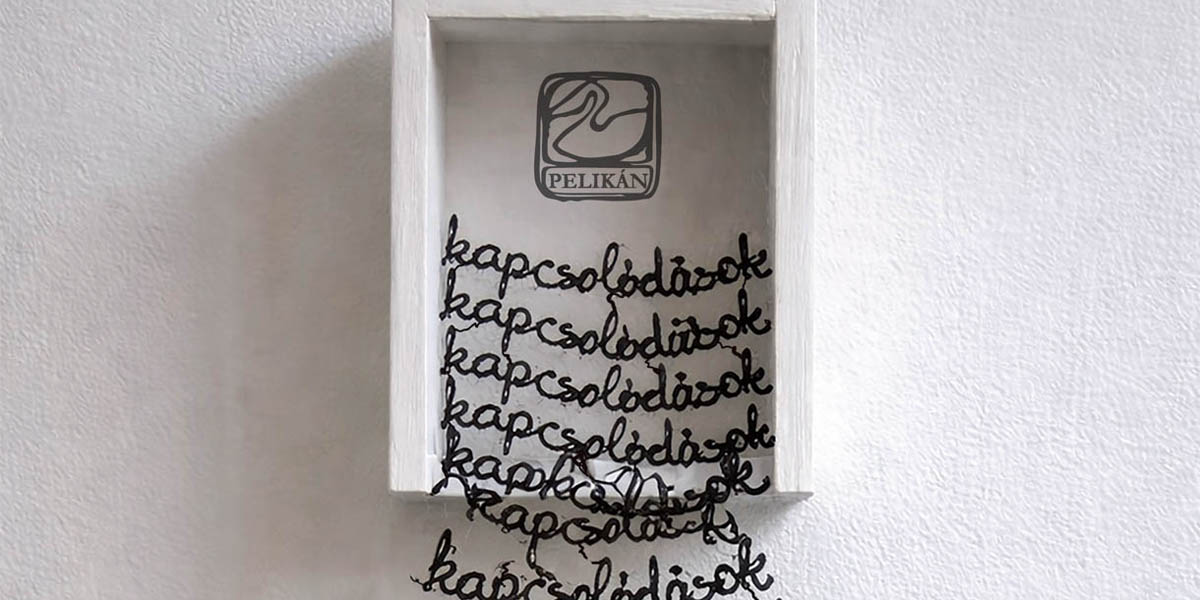 PELIKÁN
kapcsolódások
kapcsolódások
kapcsolódások
kapcsolódások
kapcsolódások
kapcsolódások